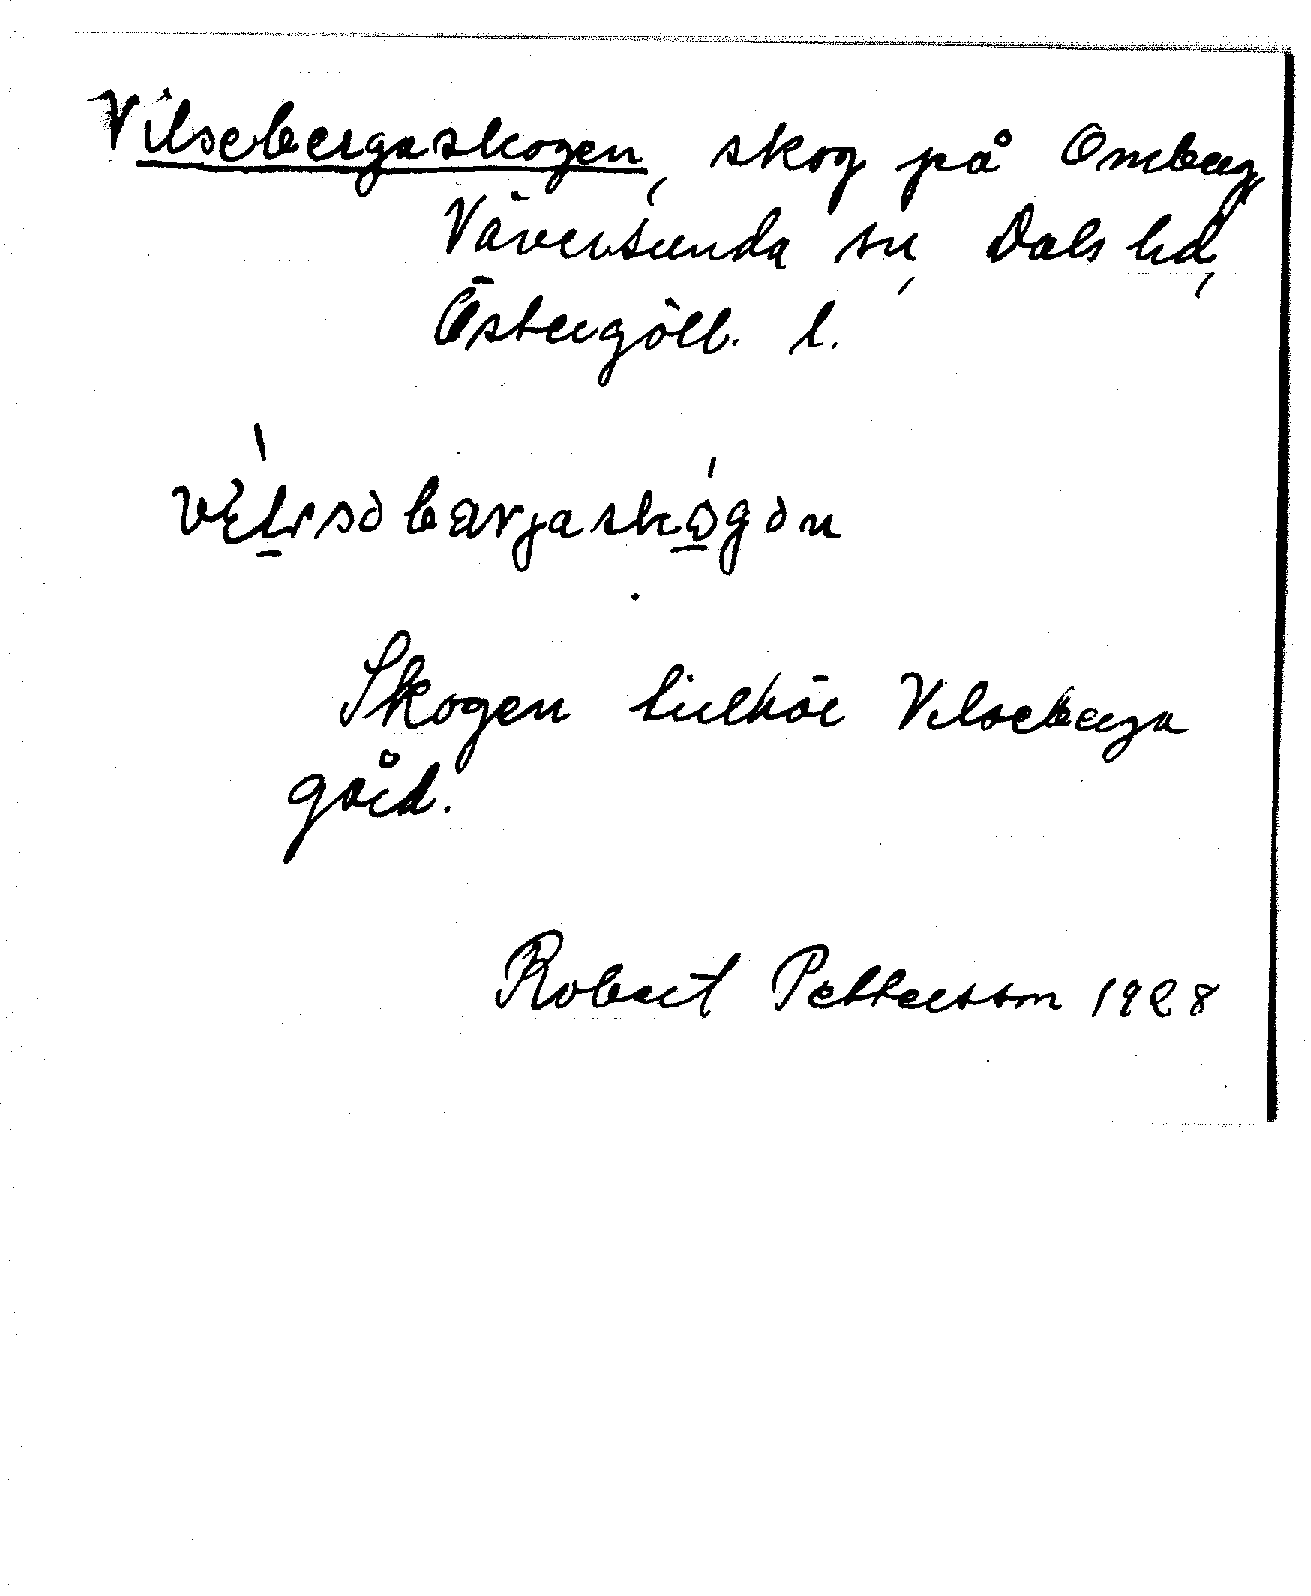 Vilsebergaskogen, skog på Omberg,
Väversunda sn, Dals hd,
Östergötl. l.
vɛ́lsəbærjaskógən
Skogen tillhör Vilseberga
gård.
Robert Pettersson 1928